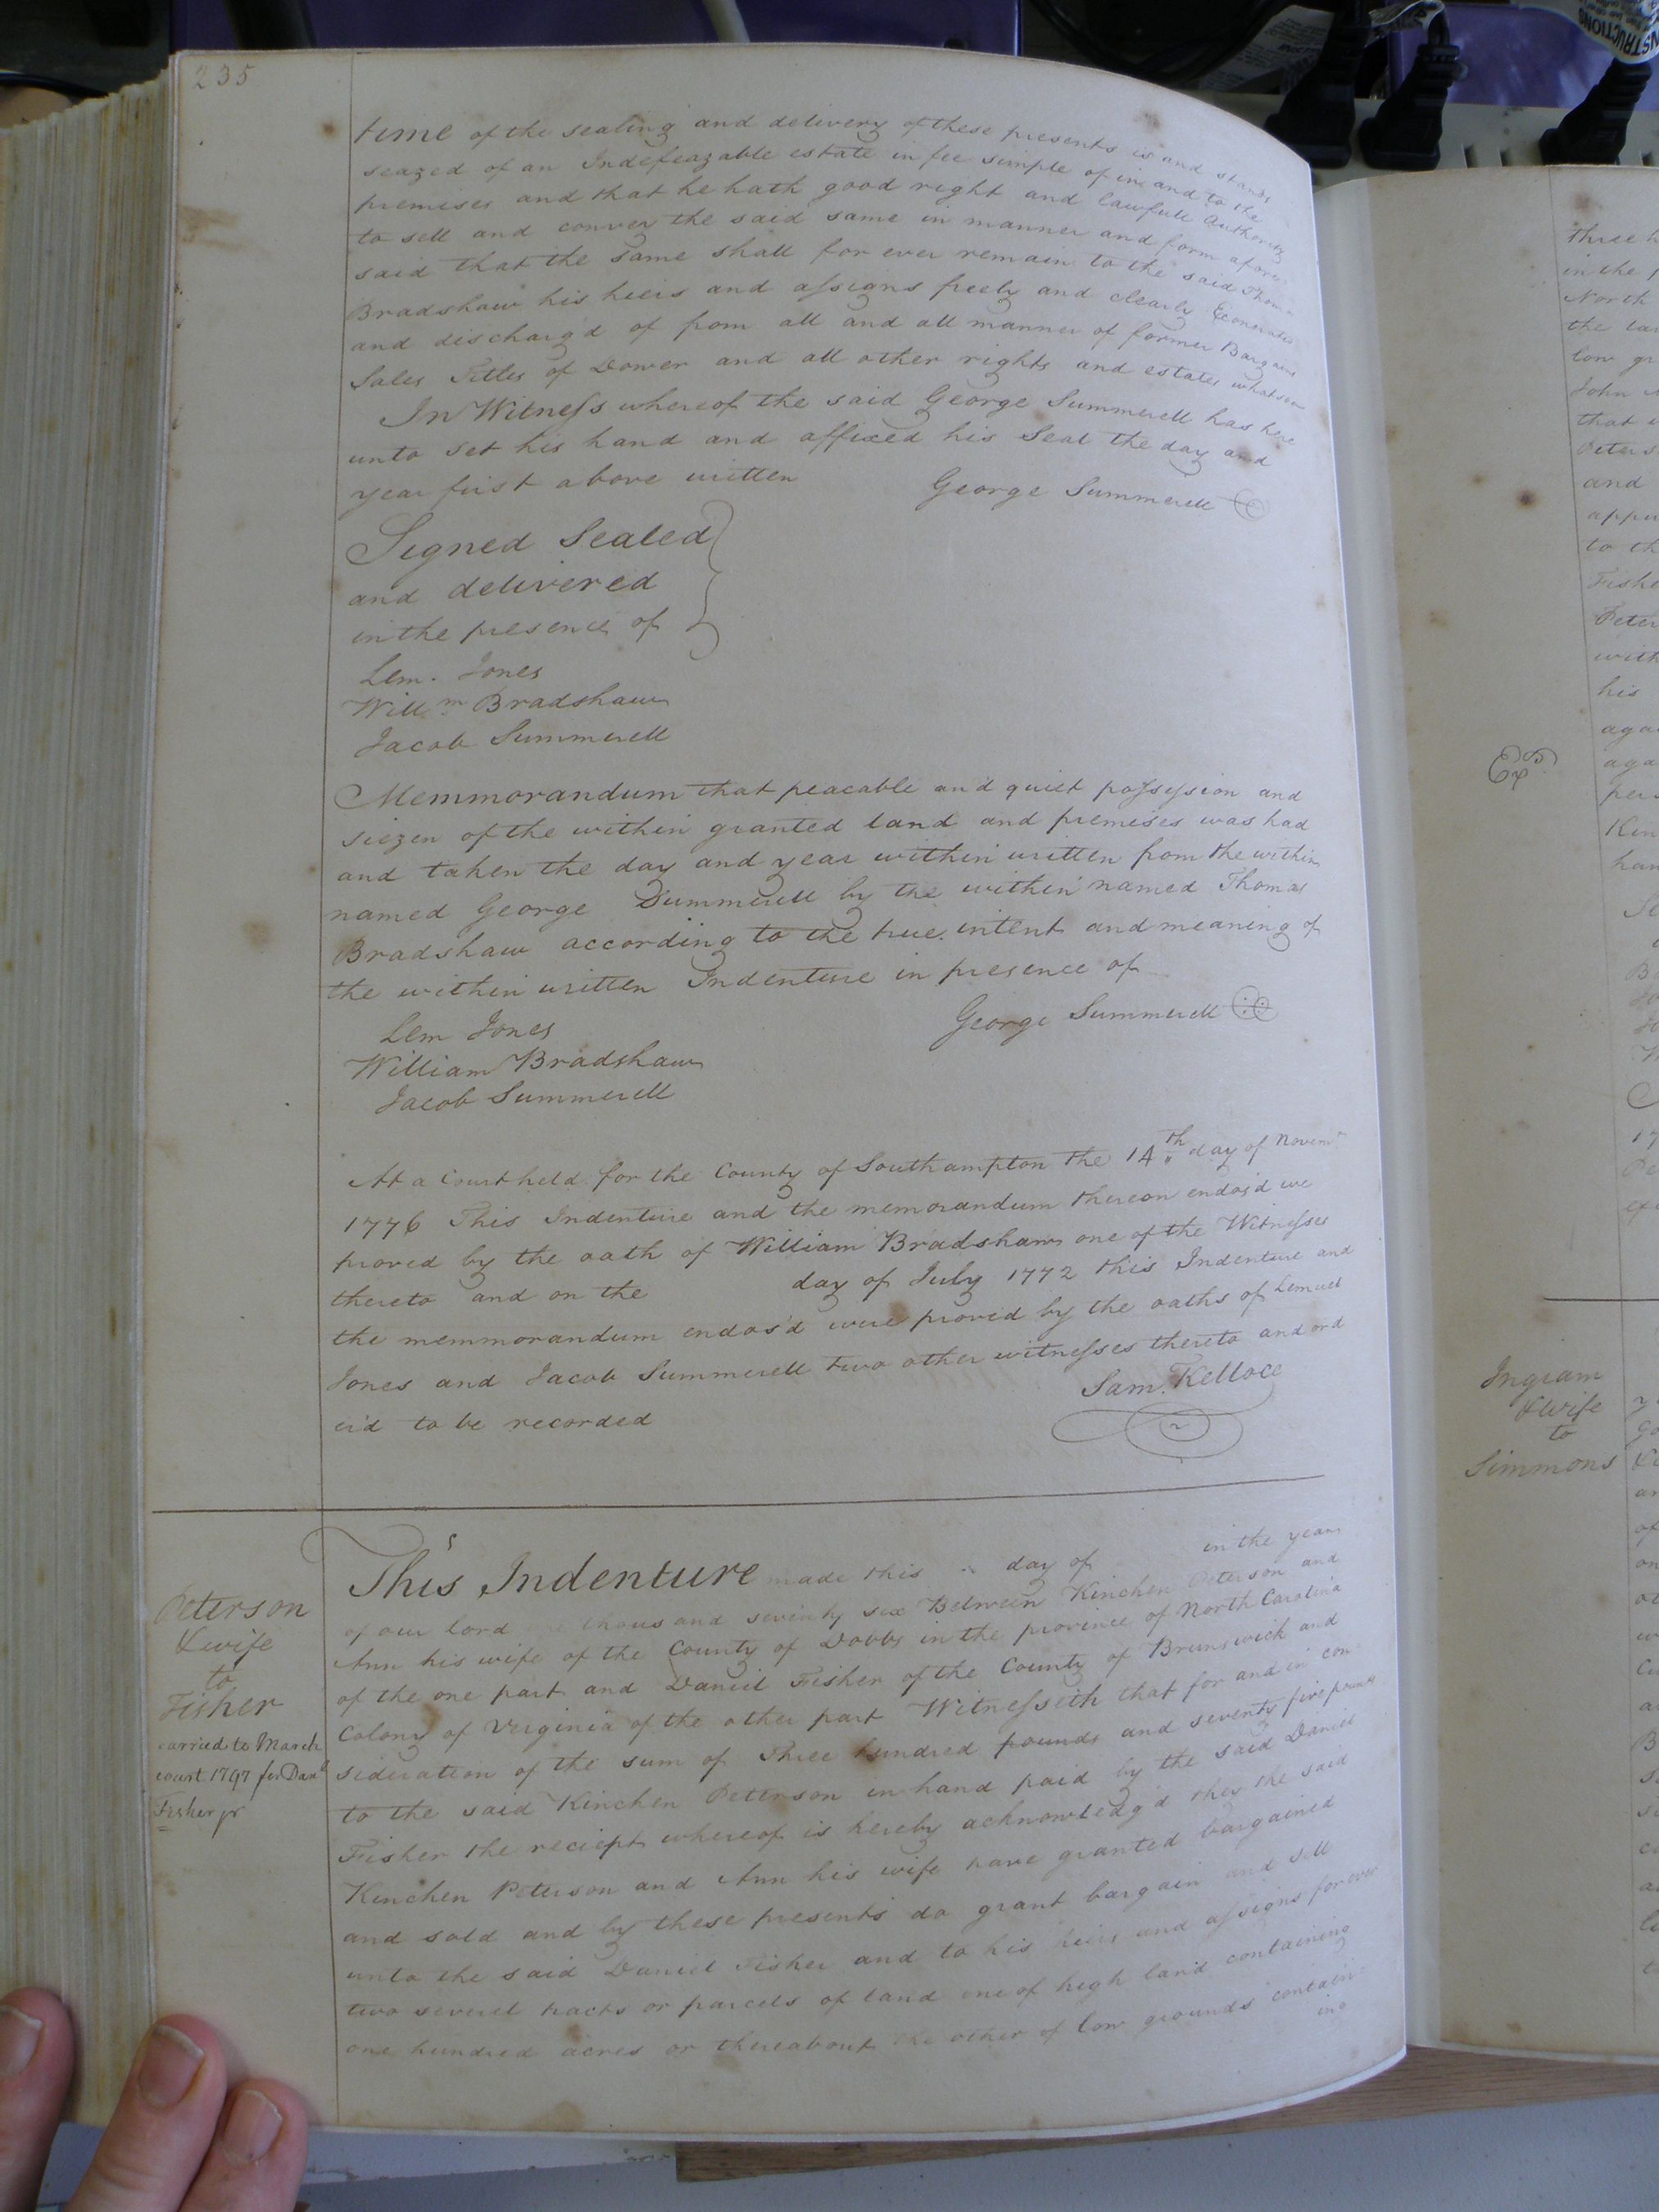 235
time of the sealing and delivery of these presents is and stands
seazed of an Indefeazable estate in fee simple of in and to the
premises and that he hath good right and lawfull authority
to sell and convey the said same in manner and form afore
said that the same shall for ever remain to the said Thomas
Bradshaw his heirs and assigns freely and clearly Exonerated
and discharg'd of from all and all manner of former Bargains
Sales Titles of Dower and all other rights and estates whatsoev
In Witness whereof the said George Summerell has here
unto set his hand and affixed his Seal the day and
year first above written George Summerell
Signed Sealed
and delivered
in the presence of
Lem. Jones
Willm Bradshaw
Jacob Summerell
Memmorandum that peacable and quiet possession and
siezen of the within granted land and premises was had
and taken the day and year within written from the within
named George Summerell by the within named Thomas
Bradshaw according to the true intent and meaning of
the within written Indenture in presence of
George Summerell
Lem Jones
William Bradshaw
Jacob Summerell
At a Court held for the County of Southampton the 14th day of Novemr
1776 This Indenture and the memorandum thereon endos'd we
proved by the oath of William Bradshaw one of the Witnesses
thereto and on the day of July 1772 this Indenture and
the memmorandum endos'd were proved by the oaths of Lemuel
Jones and Jacob Summerell two other witnesses thereto and ord
er'd to be recorded Sam. Kelloce
Peterson
& wife
to
Fisher
carried to March
court 1797 for Danl
Fisher jr
This Indenture made this day of in the year
of our lord thousand seventy six Between Kinchen Peterson and
Ann his wife of the County of Dobbs in the province of North Carolina
of the one part and Daniel Fisher of the County of Brunswick and
Colony of Verginia of the other part Witnesseth that for and in con
sideration of the sum of Three hundred pounds and seventy five pounds
to the said Kinchen Peterson in hand paid by the said Daniel
Fisher the reciept whereof is hereby acknowledg'd they the said
Kinchen Peterson and Ann his wife have granted bargained
and sold and by these presents do grant bargain and sell
unto the said Daniel Fisher and to his heirs and assigns for ever
two several tracts or parcels of land one of high land containing
one hundred acres or thereabout the other of low grounds contain
ing
Three
in the
North
the
low
John
that
Peters
and
to th
with
his
Ingram
& wife
to
Simmons
INSTRUCTIONS